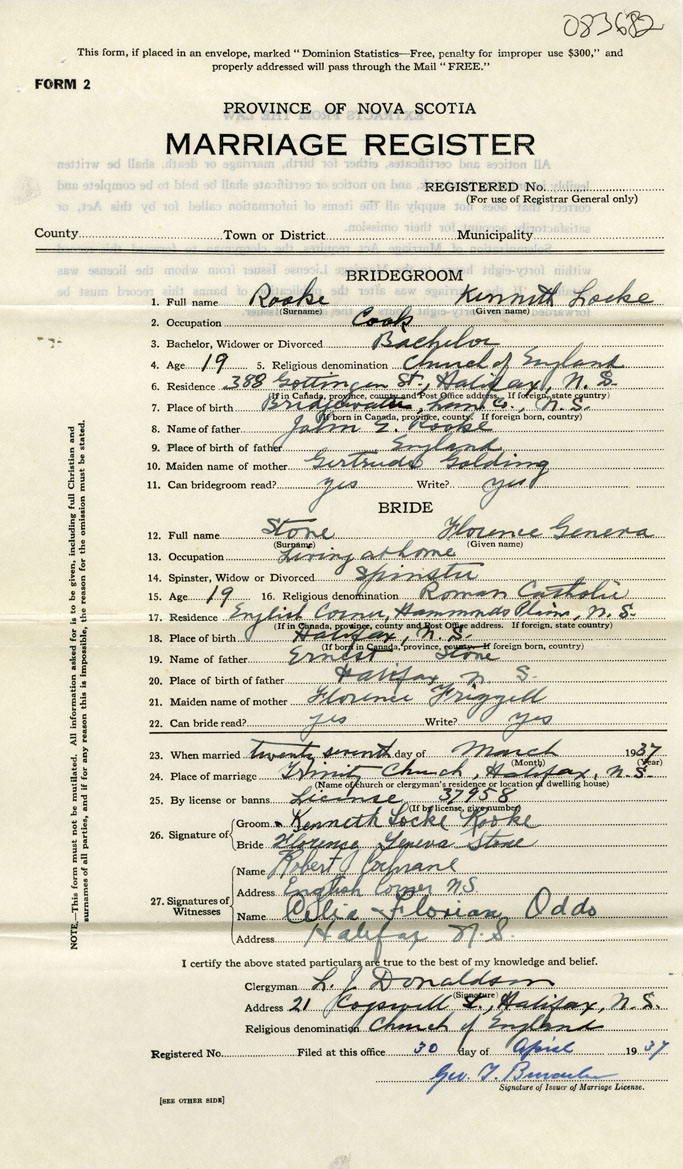 083682
This form, if placed in an envelope, marked " Dominion Statistics—Free, penalty for improper use $300," and
properly addressed will pass through the Mail " FREE."
FORM 2
PROVINCE OF NOVA SCOTIA
MARRIAGE REGISTER
REGISTERED No.
(For use of Registrar General only)
County Town or District Municipality
BRIDEGROOM
1. Full name Rooke Kenneth Locke
(Surname) (Given name)
2. Occupation Cook
3. Bachelor, Widower or Divorced Bachelor
4. Age 19 5. Religious denomination Church of England
6. Residence 388 Gottingen St., Halifax, N. S.
(If in Canada, province, county and Post Office address. If foreign, state country)
7. Place of birth Bridgewater, Lun. Co., N. S.
(If born in Canada, province, county. If foreign born, country)
8. Name of father John E. Rooke
9. Place of birth of father England
10. Maiden name of mother Gertrude Golding
11. Can bridegroom read? yes Write? yes
BRIDE
12. Full name Stone Florence Geneva
(Surname) (Given name)
13. Occupation Living at home
14. Spinster, Widow or Divorced Spinster
15. Age 19 16. Religious denomination Roman Catholic
17. Residence English Corner, Hammonds Plains, N. S.
(If in Canada, province, county and Post Office address. If foreign, state country)
18. Place of birth Halifax, N. S.
(If born in Canada, province, county. If foreign born, country)
19. Name of father Ernest Stone
20. Place of birth of father Halifax N S.
21. Maiden name of mother Florence Frizzell
22. Can bride read? yes Write? yes
23. When married twenty seventh day of March 1937
(Month) (Year)
24. Place of marriage Trinity Church, Halifax, N. S.
(Name of church or clergyman's residence or location of dwelling house)
25. By license or banns License 37958
(If by license, give number)
26. Signature of Groom Kenneth Locke Rooke
Bride Florence Geneva Stone
27. Signatures of Witnesses
Name Robert J Cochrane
Address English Corner N.S.
Name Celia Florian Oddo
Address Halifax N.S.
I certify the above stated particulars are true to the best of my knowledge and belief.
Clergyman L. J Donaldson
(Signature)
Address 21 Cogswell St., Halifax, N. S.
Religious denomination Church of England
Registered No. Filed at this office 30 day of April 1937
Geo. T.
Signature of Issuer of Marriage License.
[SEE OTHER SIDE]
NOTE.—This form must not be mutilated. All information asked for is to be given, including full Christian and
surnames of all parties, and if for any reason this is impossible, the reason for the omission must be stated.